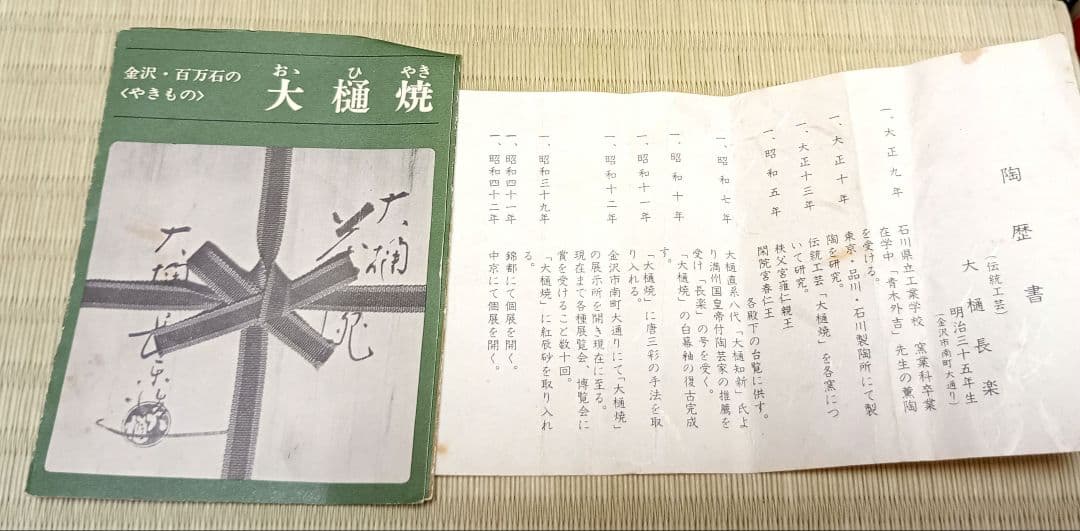 金沢・百万石の
〈やきもの〉
おゝ ひ やき
大樋焼
大樋
大樋長楽
陶歴書
(伝統工芸)
大樋長楽
明治三十五年生
(金沢市南町大通り)
一、大正九年
石川県立工業学校 窯業科卒業
在学中「青木外吉」先生の薫陶
を受ける。
一、大正十年
東京・品川・石川製陶所にて製
陶を研究。
一、大正十三年
伝統工芸「大樋焼」を各窯につ
いて研究。
一、昭和五年
秩父宮雍仁親王
閑院宮春仁王
各殿下の台覧に供す。
一、昭和七年
大樋直系八代、「大樋知新」氏よ
り満州国皇帝竹陶芸家の推薦を
受け「長楽」の号を受く。
一、昭和十年
「大樋焼」の白幕釉の復古完成
す。
一、昭和十一年
「大樋焼」に唐三彩の手法を取
り入れる。
一、昭和十二年
金沢市南町大通りにて「大樋焼」
の展示所を開き現在に至る。
現在まで各種展覧会、博覧会に
賞を受けること数十回。
一、昭和三十九年
「大樋焼」に紅辰砂を取り入れ
る。
一、昭和四十一年
錦都にて個展を開く。
一、昭和四十二年
中京にて個展を開く。